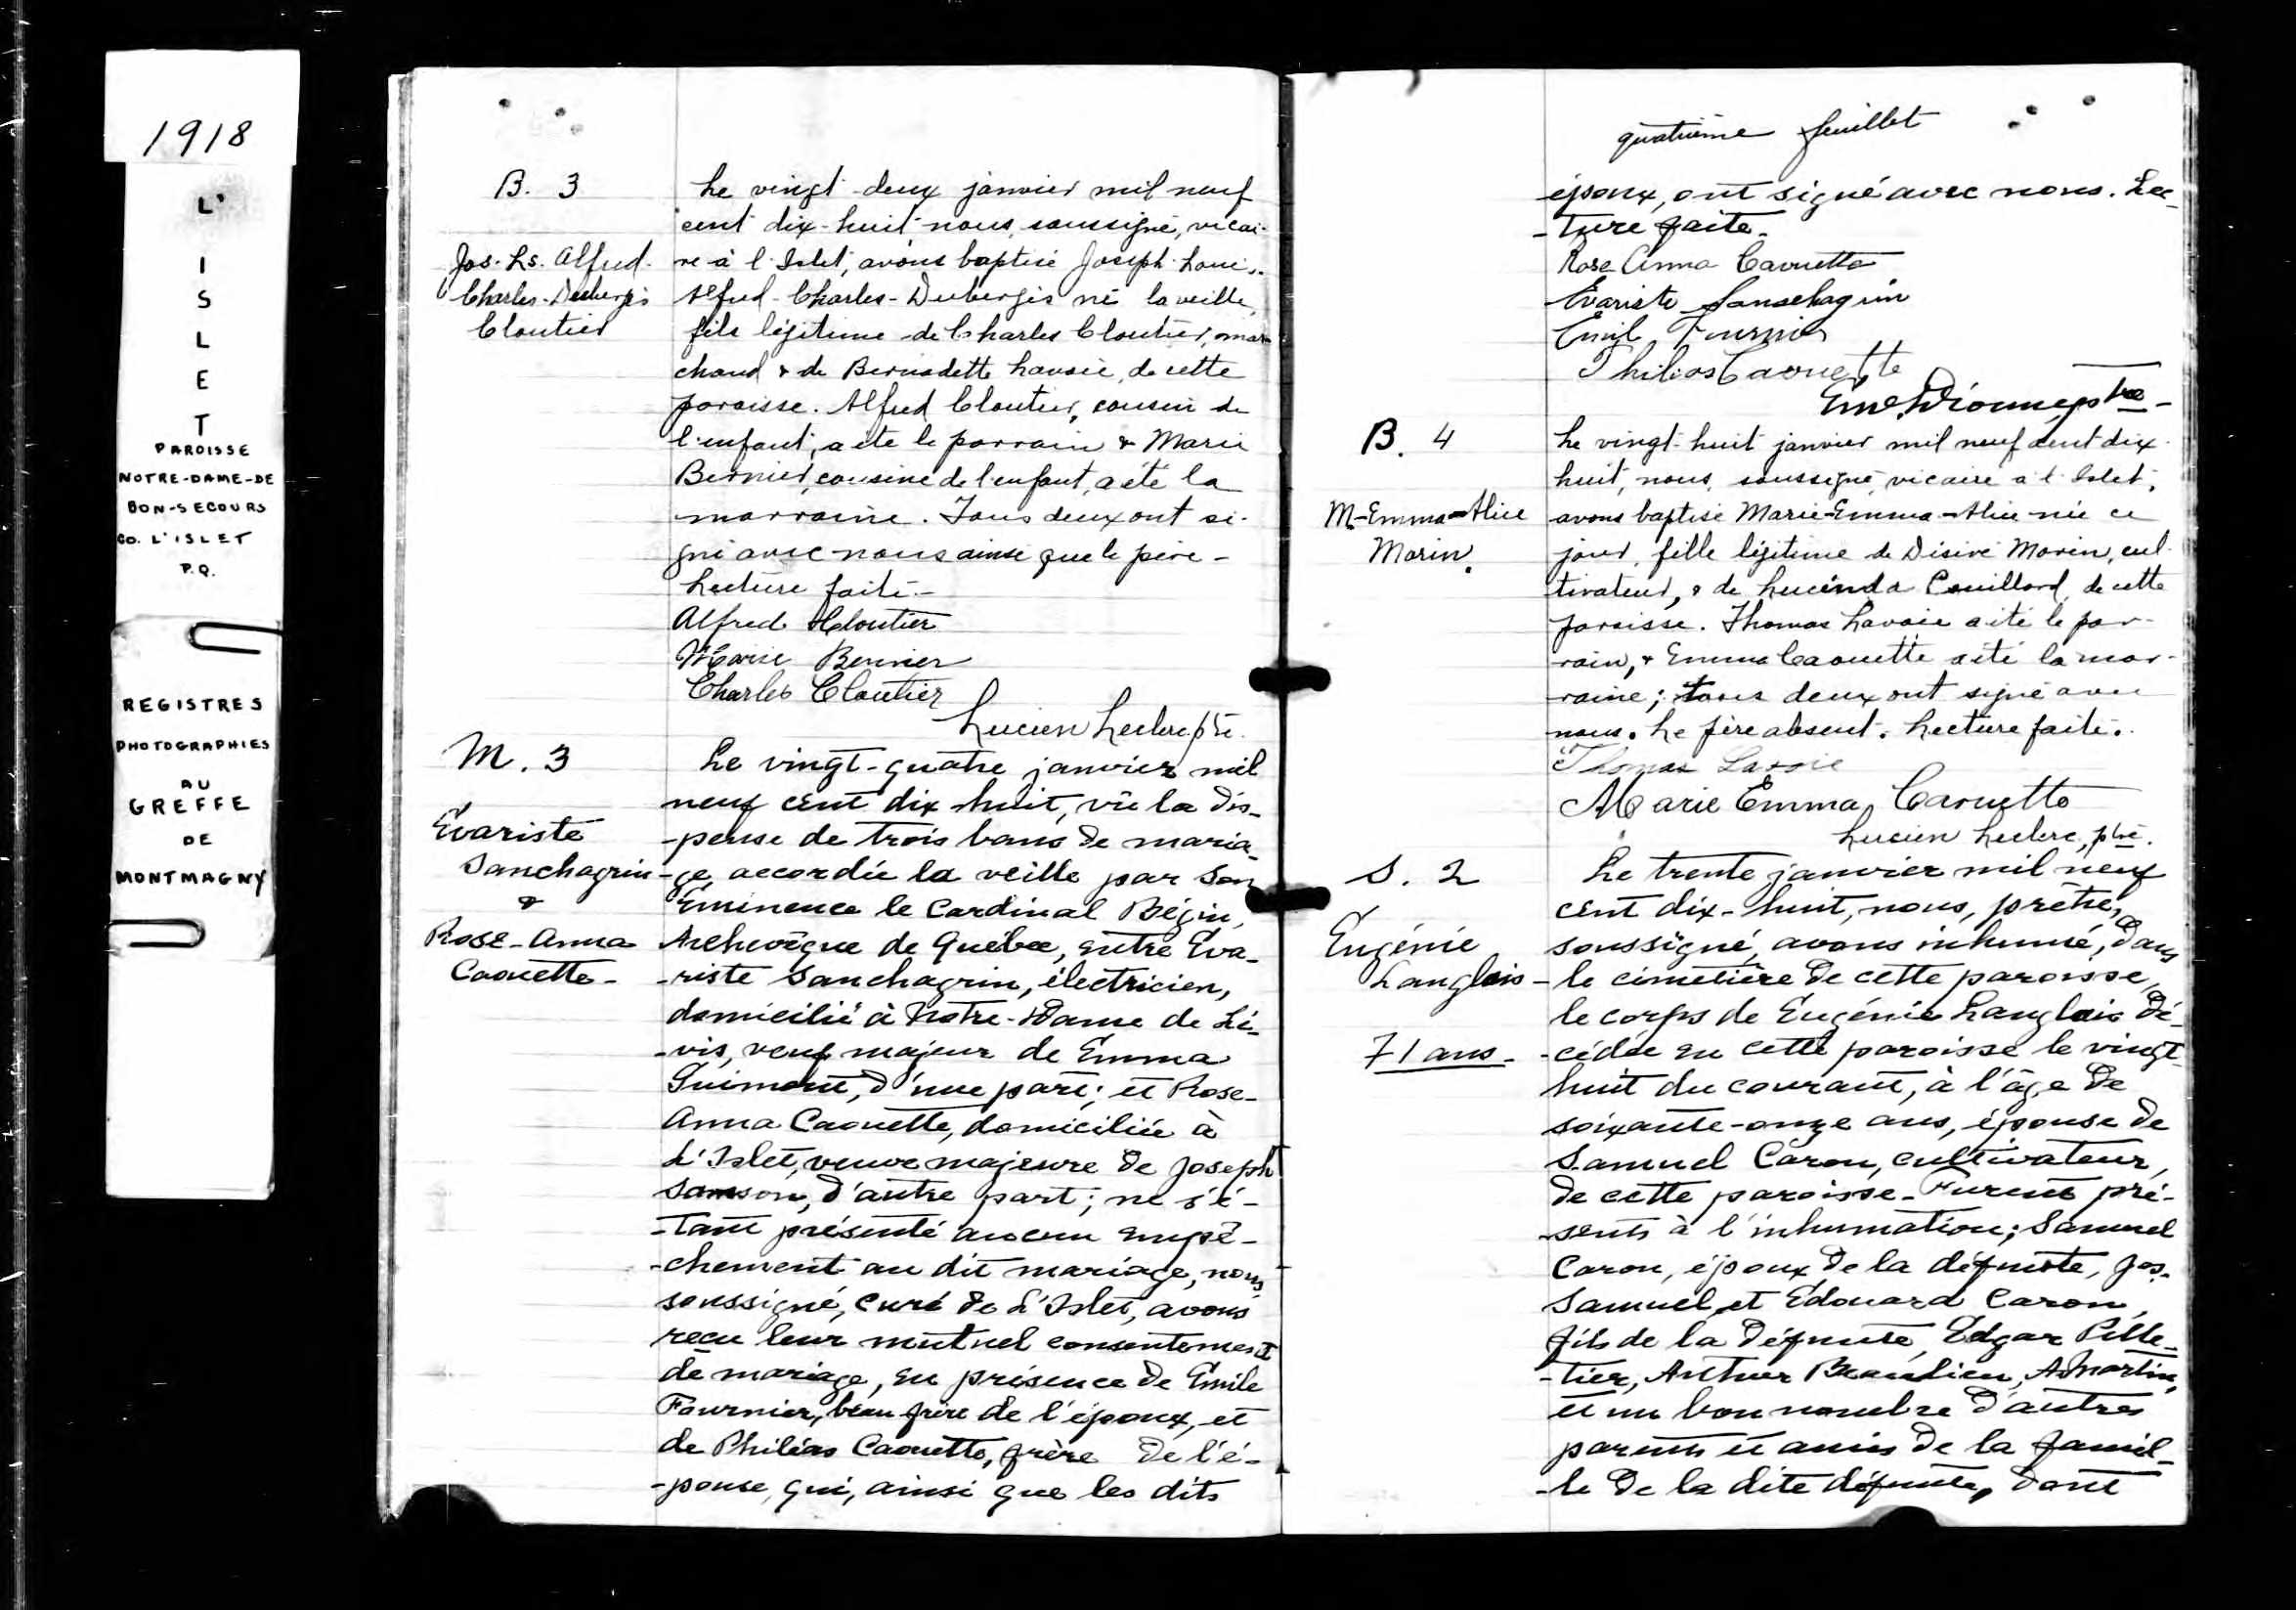 1918
L'
I
S
L
E
T
PAROISSE
NOTRE-DAME-DE
BON-SECOURS
CO. L'ISLET
P.Q.
REGISTRES
PHOTOGRAPHIES
AU
GREFFE
DE
MONTMAGNY
B. 3
Jos. Ls. Alfred
Charles-Dubergès
Cloutier
Le vingt-deux janvier mil neuf
cent dix-huit nous, soussigné, vicai-
re à l'Islet, avons baptisé Joseph-Louis-
Alfred-Charles-Dubergès né la veille,
fils légitime de Charles Cloutier, mar-
chand & de Bernadette Lavoie, de cette
paroisse. Alfred Cloutier, cousin de
l'enfant, a été le parrain & Marie
Bernier, cousine de l'enfant, a été la
marraine. Tous deux ont si-
gné avec nous ainsi que le père-
Lecture faite.-
Alfred Cloutier
Marie Bernier
Charles Cloutier
Lucien Leclerc ptre.
M. 3
Evariste
Sanchagrin
&
Rose-Anna
Caouette-
Le vingt-quatre janvier mil
neuf cent dix-huit, vu la dis-
-pense de trois bans de maria-
-ge accordée la veille par Son
Eminence le Cardinal Bégin,
Archevêque de Québec, entre Eva-
-riste Sanchagrin, électricien,
domicilié à Notre-Dame de Lé-
-vis, veuf majeur de Emma
Guimont, d'une part; et Rose-
Anna Caouette, domiciliée à
L'Islet, veuve majeure de Joseph
Samson, d'autre part; ne s'é-
-tant présenté aucun empê-
-chement au dit mariage, nous
soussigné, curé de L'Islet, avons
reçu leur mutuel consentement
de mariage, en présence de Emile
Fournier, beau frère de l'époux, et
de Philéas Caouette, frère de l'é-
-pouse, qui, ainsi que les dits
quatrième feuillet
époux, ont signé avec nous. Lec-
-ture faite-
Rose Anna Caouette
Evariste Sanschagrin
Emile Fournier
Philias Caouette
Em. Dionne ptre-
B. 4
M-Emma-Alice
Morin.
Le vingt-huit janvier mil neuf cent dix-
huit, nous, soussigné, vicaire à l'Islet,
avons baptisé Marie-Emma-Alice née ce
jour, fille légitime de Désiré Morin, cul-
tivateur, & de Lucinda Couillard, de cette
paroisse. Thomas Lavoie a été le par-
rain, & Emma Caouette a été la mar-
raine; tous deux ont signé avec
nous. Le père absent. Lecture faite.
Thomas Lavoie
Marie Emma Caouette
Lucien Leclerc, ptre.
S. 2
Eugénie
Langlois-
71 ans-
Le trente janvier mil neuf
cent dix-huit, nous, prêtre,
soussigné, avons inhumé, dans
le cimetière de cette paroisse,
le corps de Eugénie Langlois dé-
-cédée en cette paroisse le vingt-
huit du courant, à l'âge de
soixante-onze ans, épouse de
Samuel Caron, cultivateur,
de cette paroisse. Furent pré-
-sents à l'inhumation; Samuel
Caron, époux de la défunte, Jos.
Samuel et Edouard Caron,
fils de la défunte, Edgar Pelle-
-tier, Arthur Beaulieu, A. Martin,
et un bon nombre d'autres
parents et amis de la famil-
-le de la dite défunte, dont